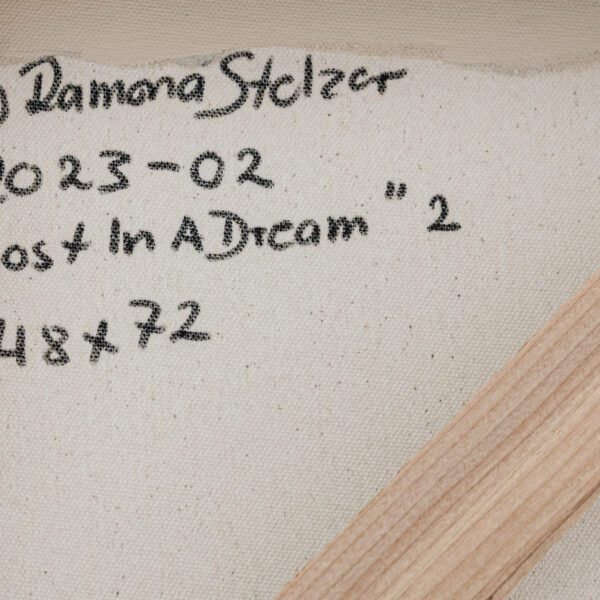 ) Ramona Stelzer
2023-02
ost In A Dream" 2
48x72